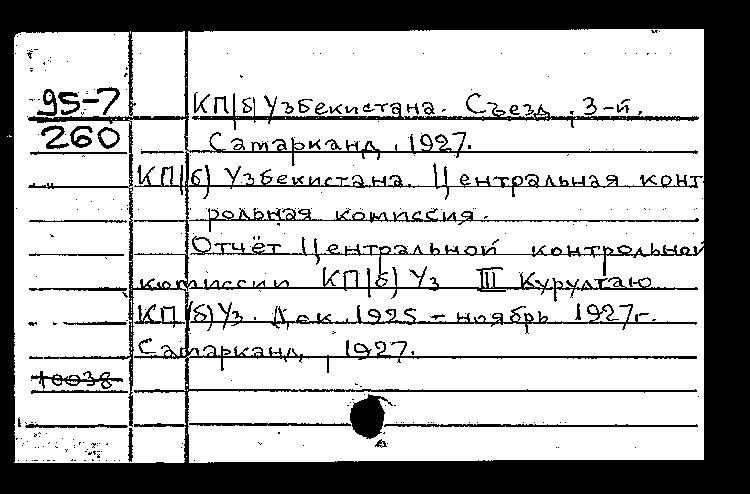 95-7
260
КП(б) Узбекистана. Съезд, 3-й.
Самарканд, 1927.
КП(б) Узбекистана. Центральная конт
рольная комиссия.
Отчёт Центральной контрольной
комиссии КП(б) Уз III Курултаю
КП(б)Уз. Дек. 1925 - ноябрь 1927г.
Самарканд, 1927.
10038